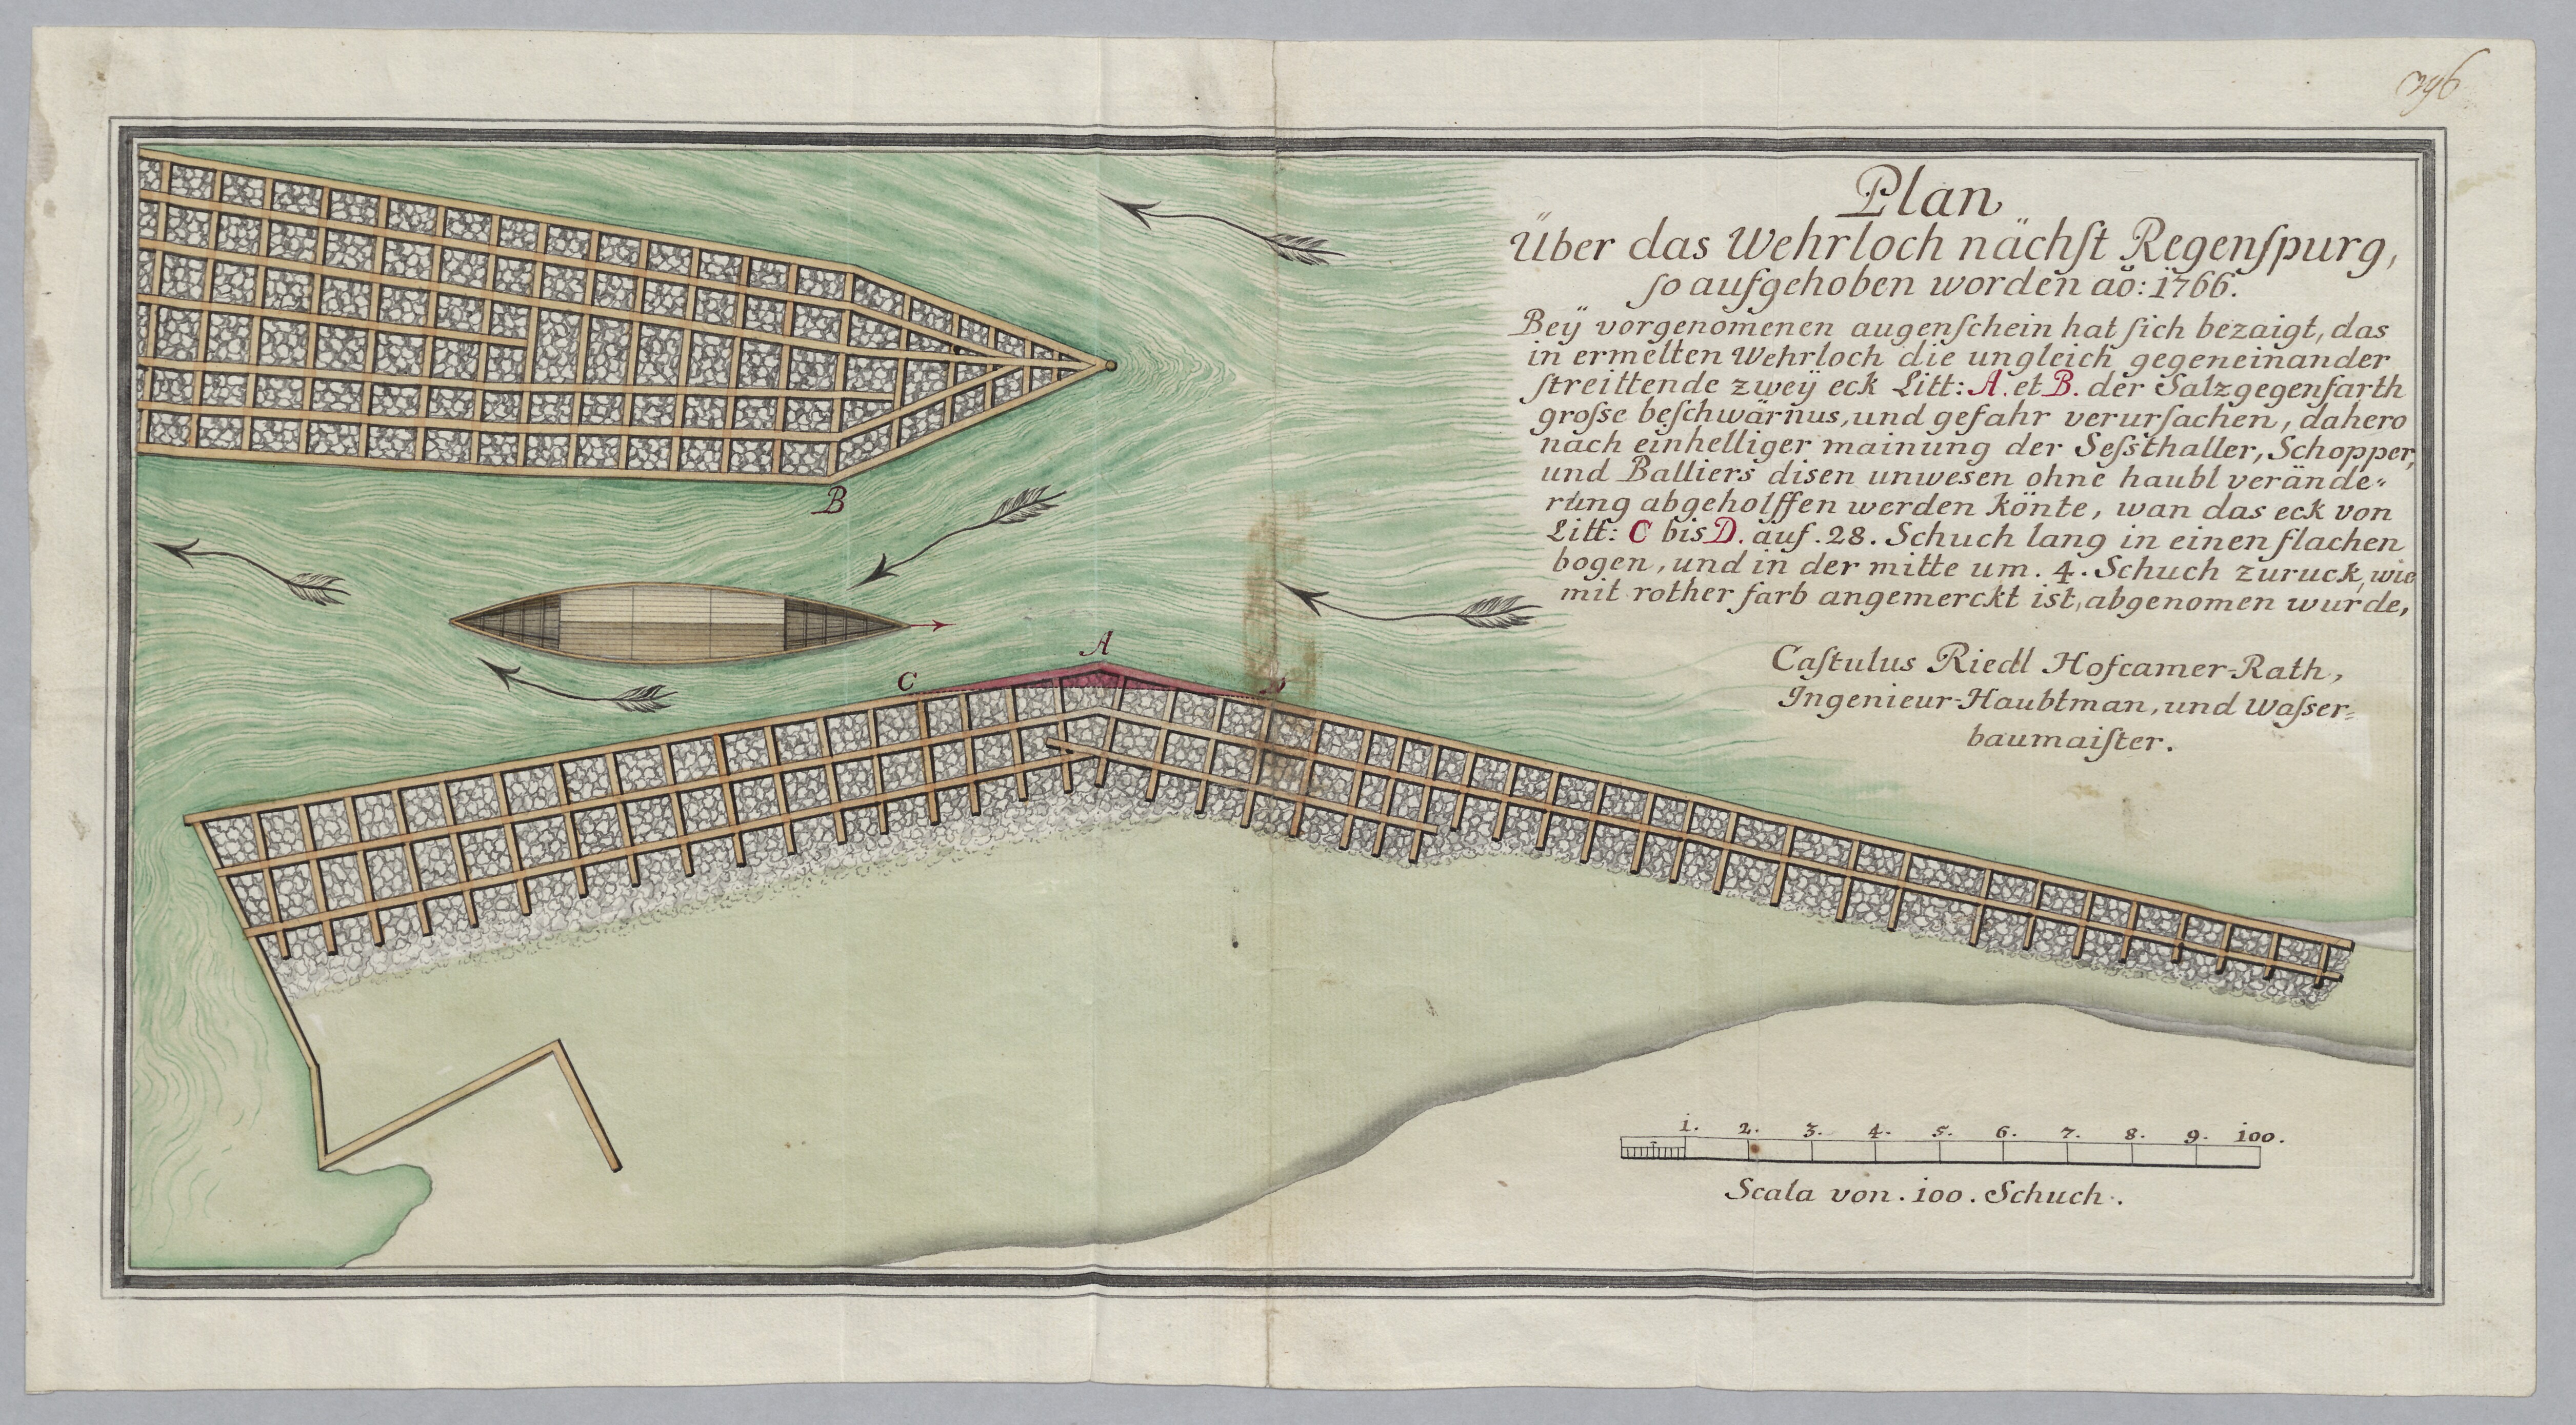 396
Plan
Über das Wehrloch nächst Regenspurg,
so aufgehoben worden aõ: 1766.
Beÿ vorgenomenen augenschein hat sich bezaigt, das
in ermelten Wehrloch die ungleich gegeneinander
streittende zweÿ eck Litt: A. et B. der Salzgegenfarth
grosse beschwärnus, und gefahr verursachen, dahero
nach einhelliger mainung der Sessthaller, Schopper,
und Balliers disen unwesen ohne haubl verände-
rung abgeholffen werden könte, wan das eck von
Litt: C bis D. auf .28. Schuch lang in einen flachen
bogen, und in der mitte um . 4. Schuch zuruck, wie
mit rother farb angemerckt ist, abgenomen wurde,
Castulus Riedl Hofcamer-Rath,
Ingenieur-Haubtman, und Wasser-
baumaister.
B
A
C
D
1. 2. 3. 4. 5. 6. 7. 8. 9. 100.
Scala von . 100 . Schuch .